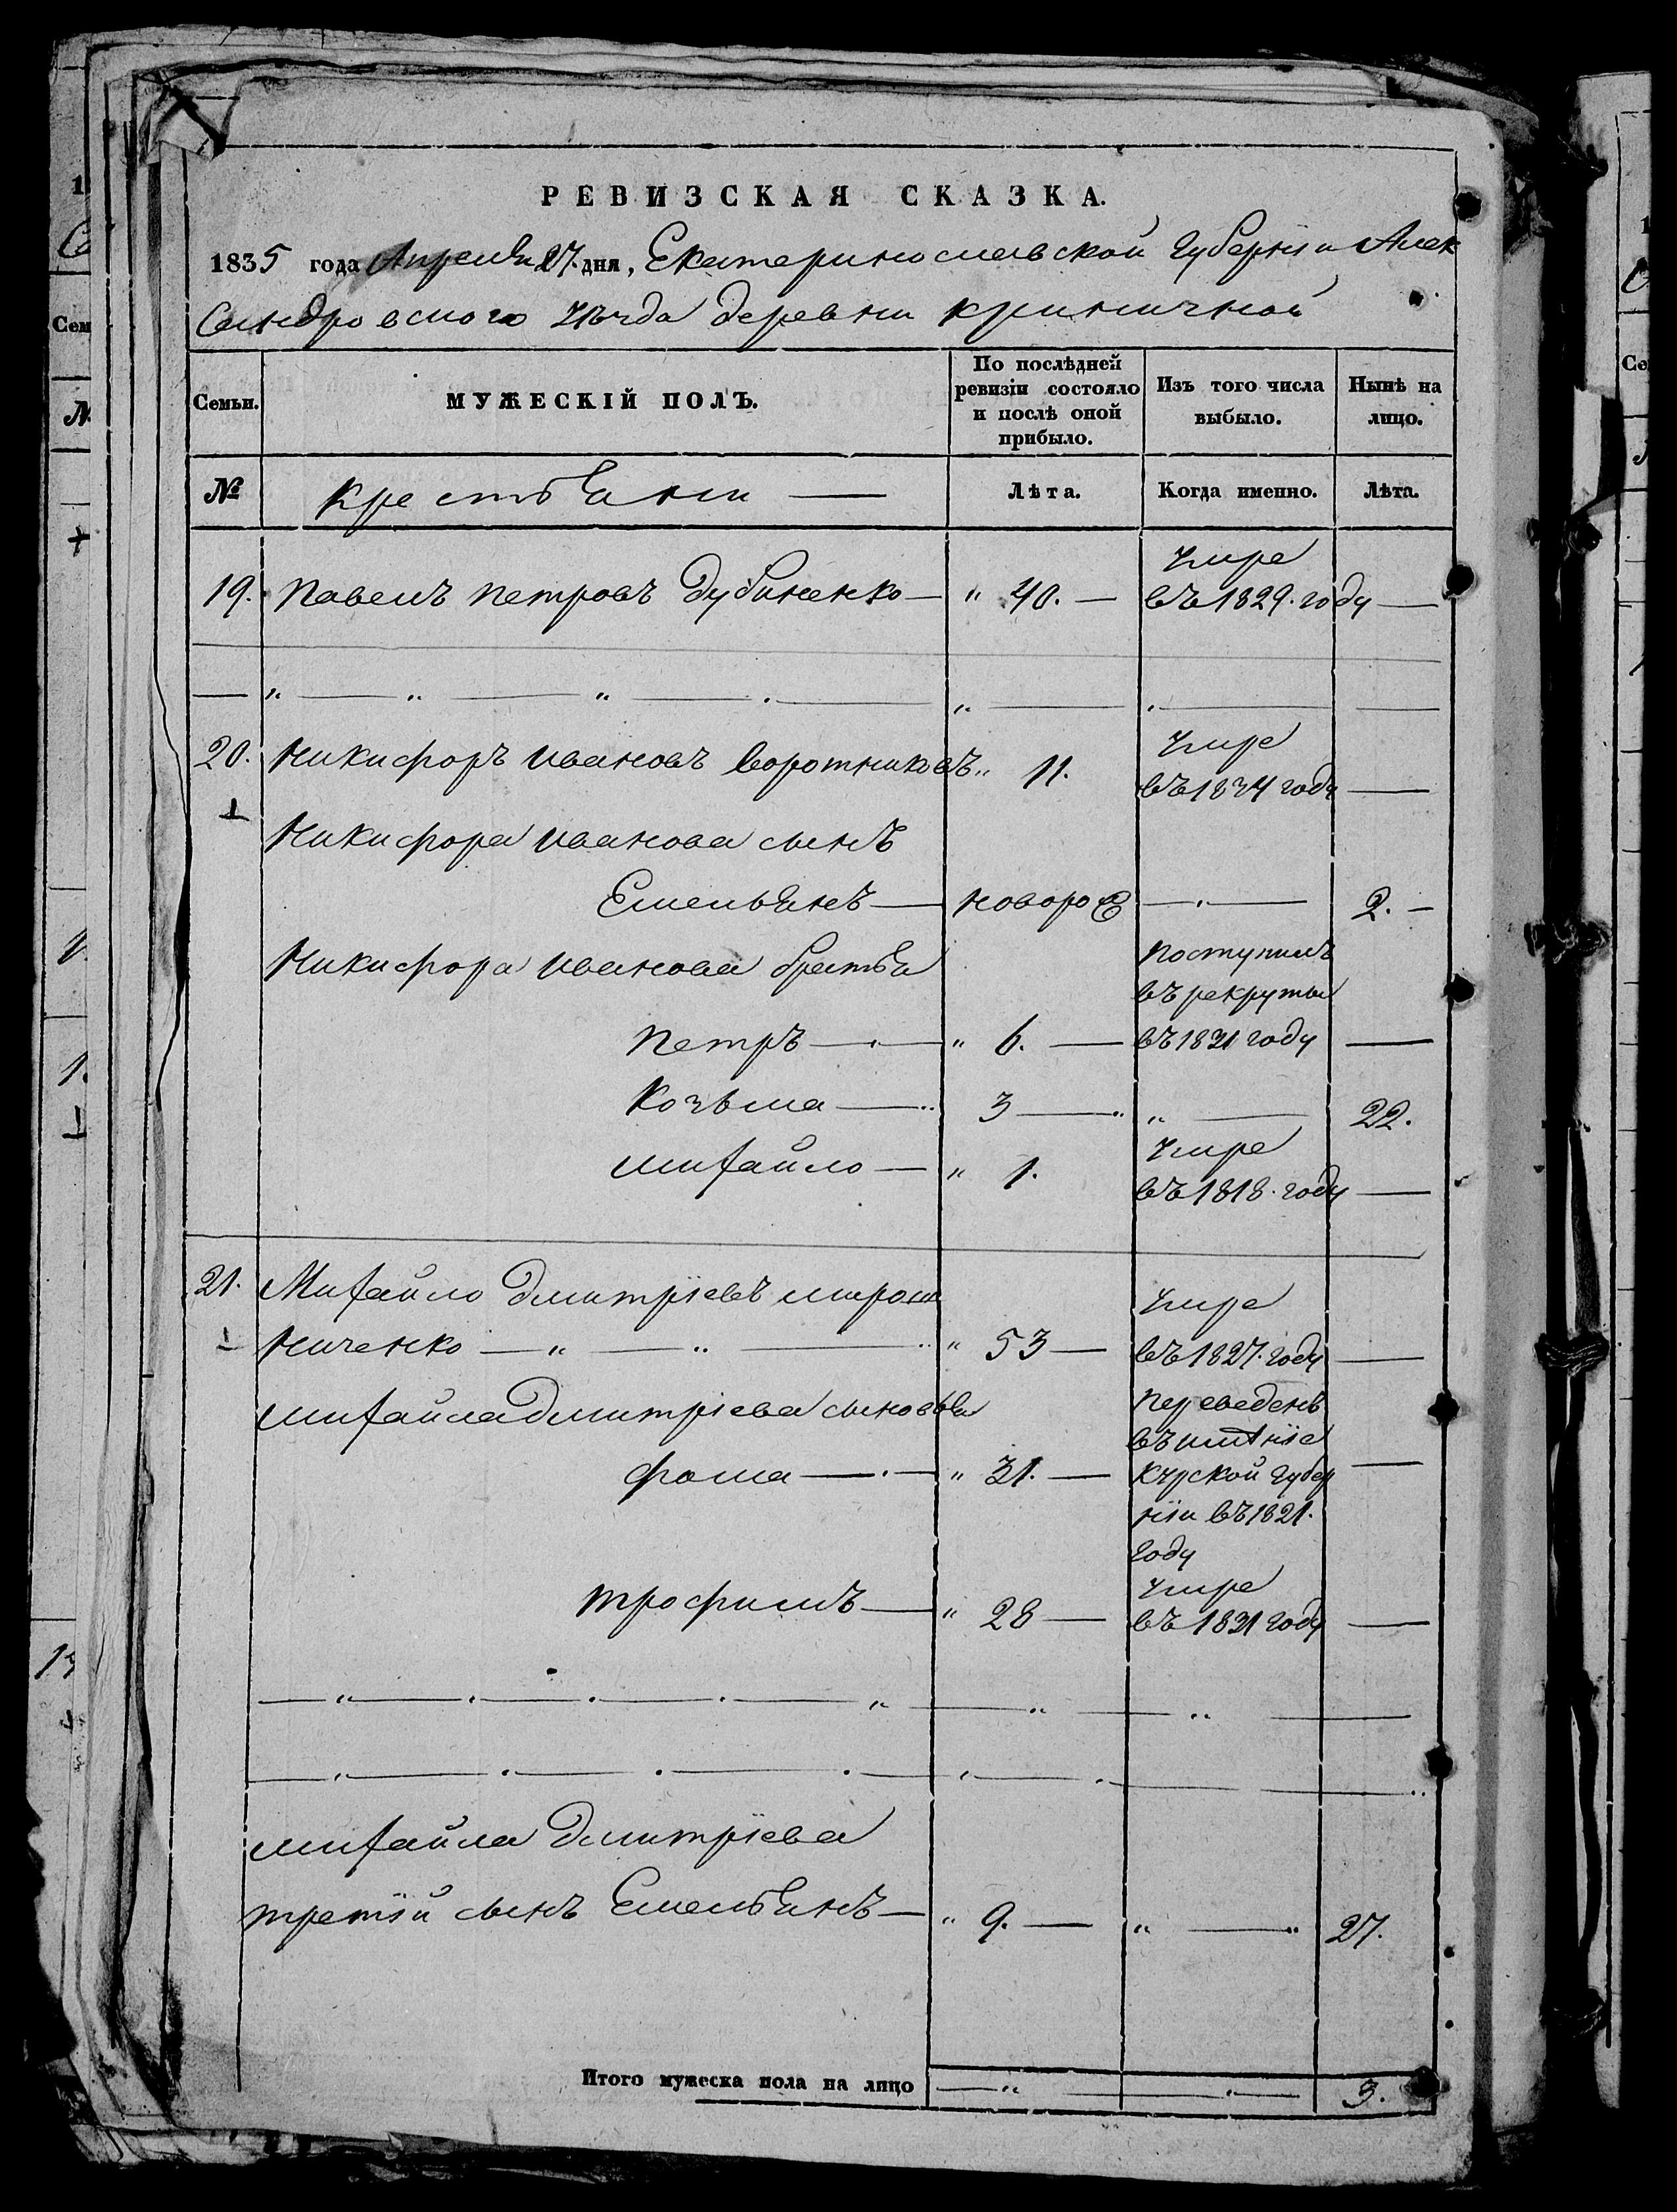 РЕВИЗСКАЯ СКАЗКА.
1835 года Апреля 27. дня, Екатеринославской Губернiи Алек
сандровского уѣзда деревни криничной
Семьи. МУЖЕСКIЙ ПОЛЪ. По послѣдней ревизiи состояло и послѣ оной прибыло. Изъ того числа выбыло. Нынѣ на лицо.
№ крестьяни — Лѣта. Когда именно. Лѣта.
умре
19. Павелъ Петровъ Дубиненко — " 40. — въ 1829. году —
умре
20. Никифоръ Ивановъ Воротниковъ " 11. въ 1834 году —
Никифора Иванова сынъ
Емельянъ — новорож — 2. —
Никифора Иванова братья поступилъ
въ рекруты
Петръ — " 6. — въ 1831 году —
Козьма — 3 — " — 22.
умре
михайло — " 1. въ 1818. году —
21. Михайло Дмитрiевъ мирош умре
ниченко — " — " 53 — въ 1827. году —
михайла Дмитрiева сыновья переведенъ
въ имѣнiе
фома — " 31. — Курской Губер —
нiи въ 1821.
году
умре
трофимъ — " 28 — въ 1831 году —
михайла Дмитрiева
третiй сынъ Емельянъ — " 9. — " — " 27.
Итого мужеска пола на лицо — " — 3.